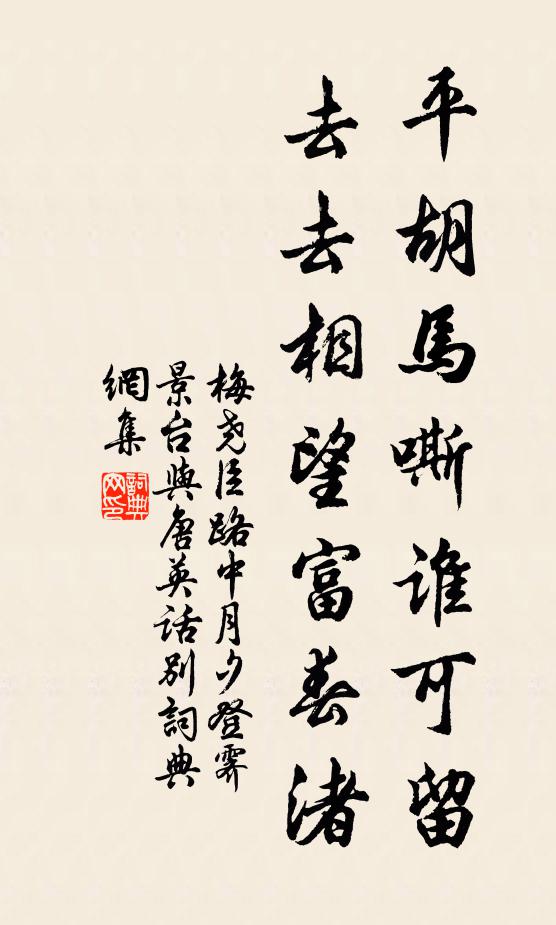 平胡馬嘶誰可留
去去相望富春渚
梅尧臣路中月夕登霽
景台與唐英话别詞典
網集
詞典
网印